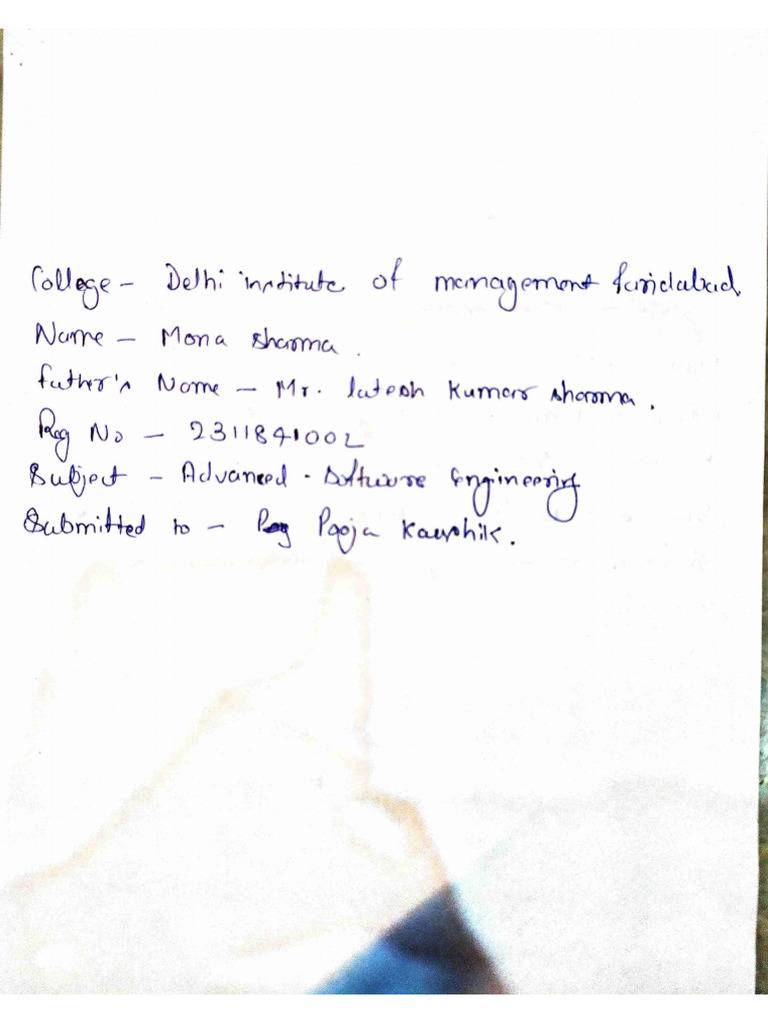 College - Delhi institute of management faridabad
Name - Mona sharma.
father's Name - Mr. latesh Kumar sharma.
Reg No - 2311841002
Subject - Advanced - Software Engineering
Submitted to - Pooja Kaushik.